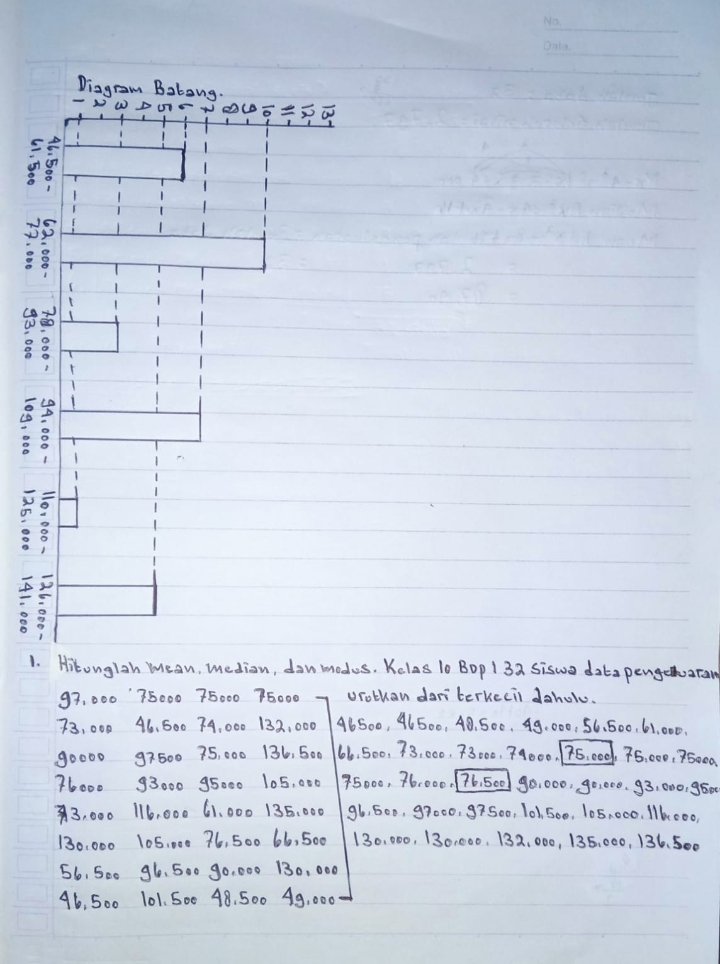 No.
Date.
Diagram Batang.
1- 2- 3- 4- 5- 6- 7- 8- 9- 10- 11- 12- 13-
46.500-
61.500
62.000-
77.000
78.000-
93.000
94.000-
109.000
110.000-
125.000
126.000-
141.000
1. Hitunglah mean, median, dan modus. Kelas 10 BDP 1 32 siswa data pengeluaran
97.000 75000 75000 75000 urutkan dari terkecil dahulu.
73,000 46.500 74,000 132,000 46500, 46500, 48,500, 49.000, 56,500, 61,000,
90000 97500 75.000 136,500 66,500, 73,000, 73000, 74000, 75.000, 75,000, 75000,
76000 93000 95000 105.000 75000, 76.000, 76,500, 90,000, 90,000, 93,000, 9500
73.000 116,000 61.000 135,000 96,500, 97000, 97500, 101,500, 105,000, 116.000,
130.000 105.000 76,500 66,500 130,000, 130,000, 132,000, 135,000, 136,500
56,500 96,500 90.000 130,000
46,500 101.500 48,500 49,000